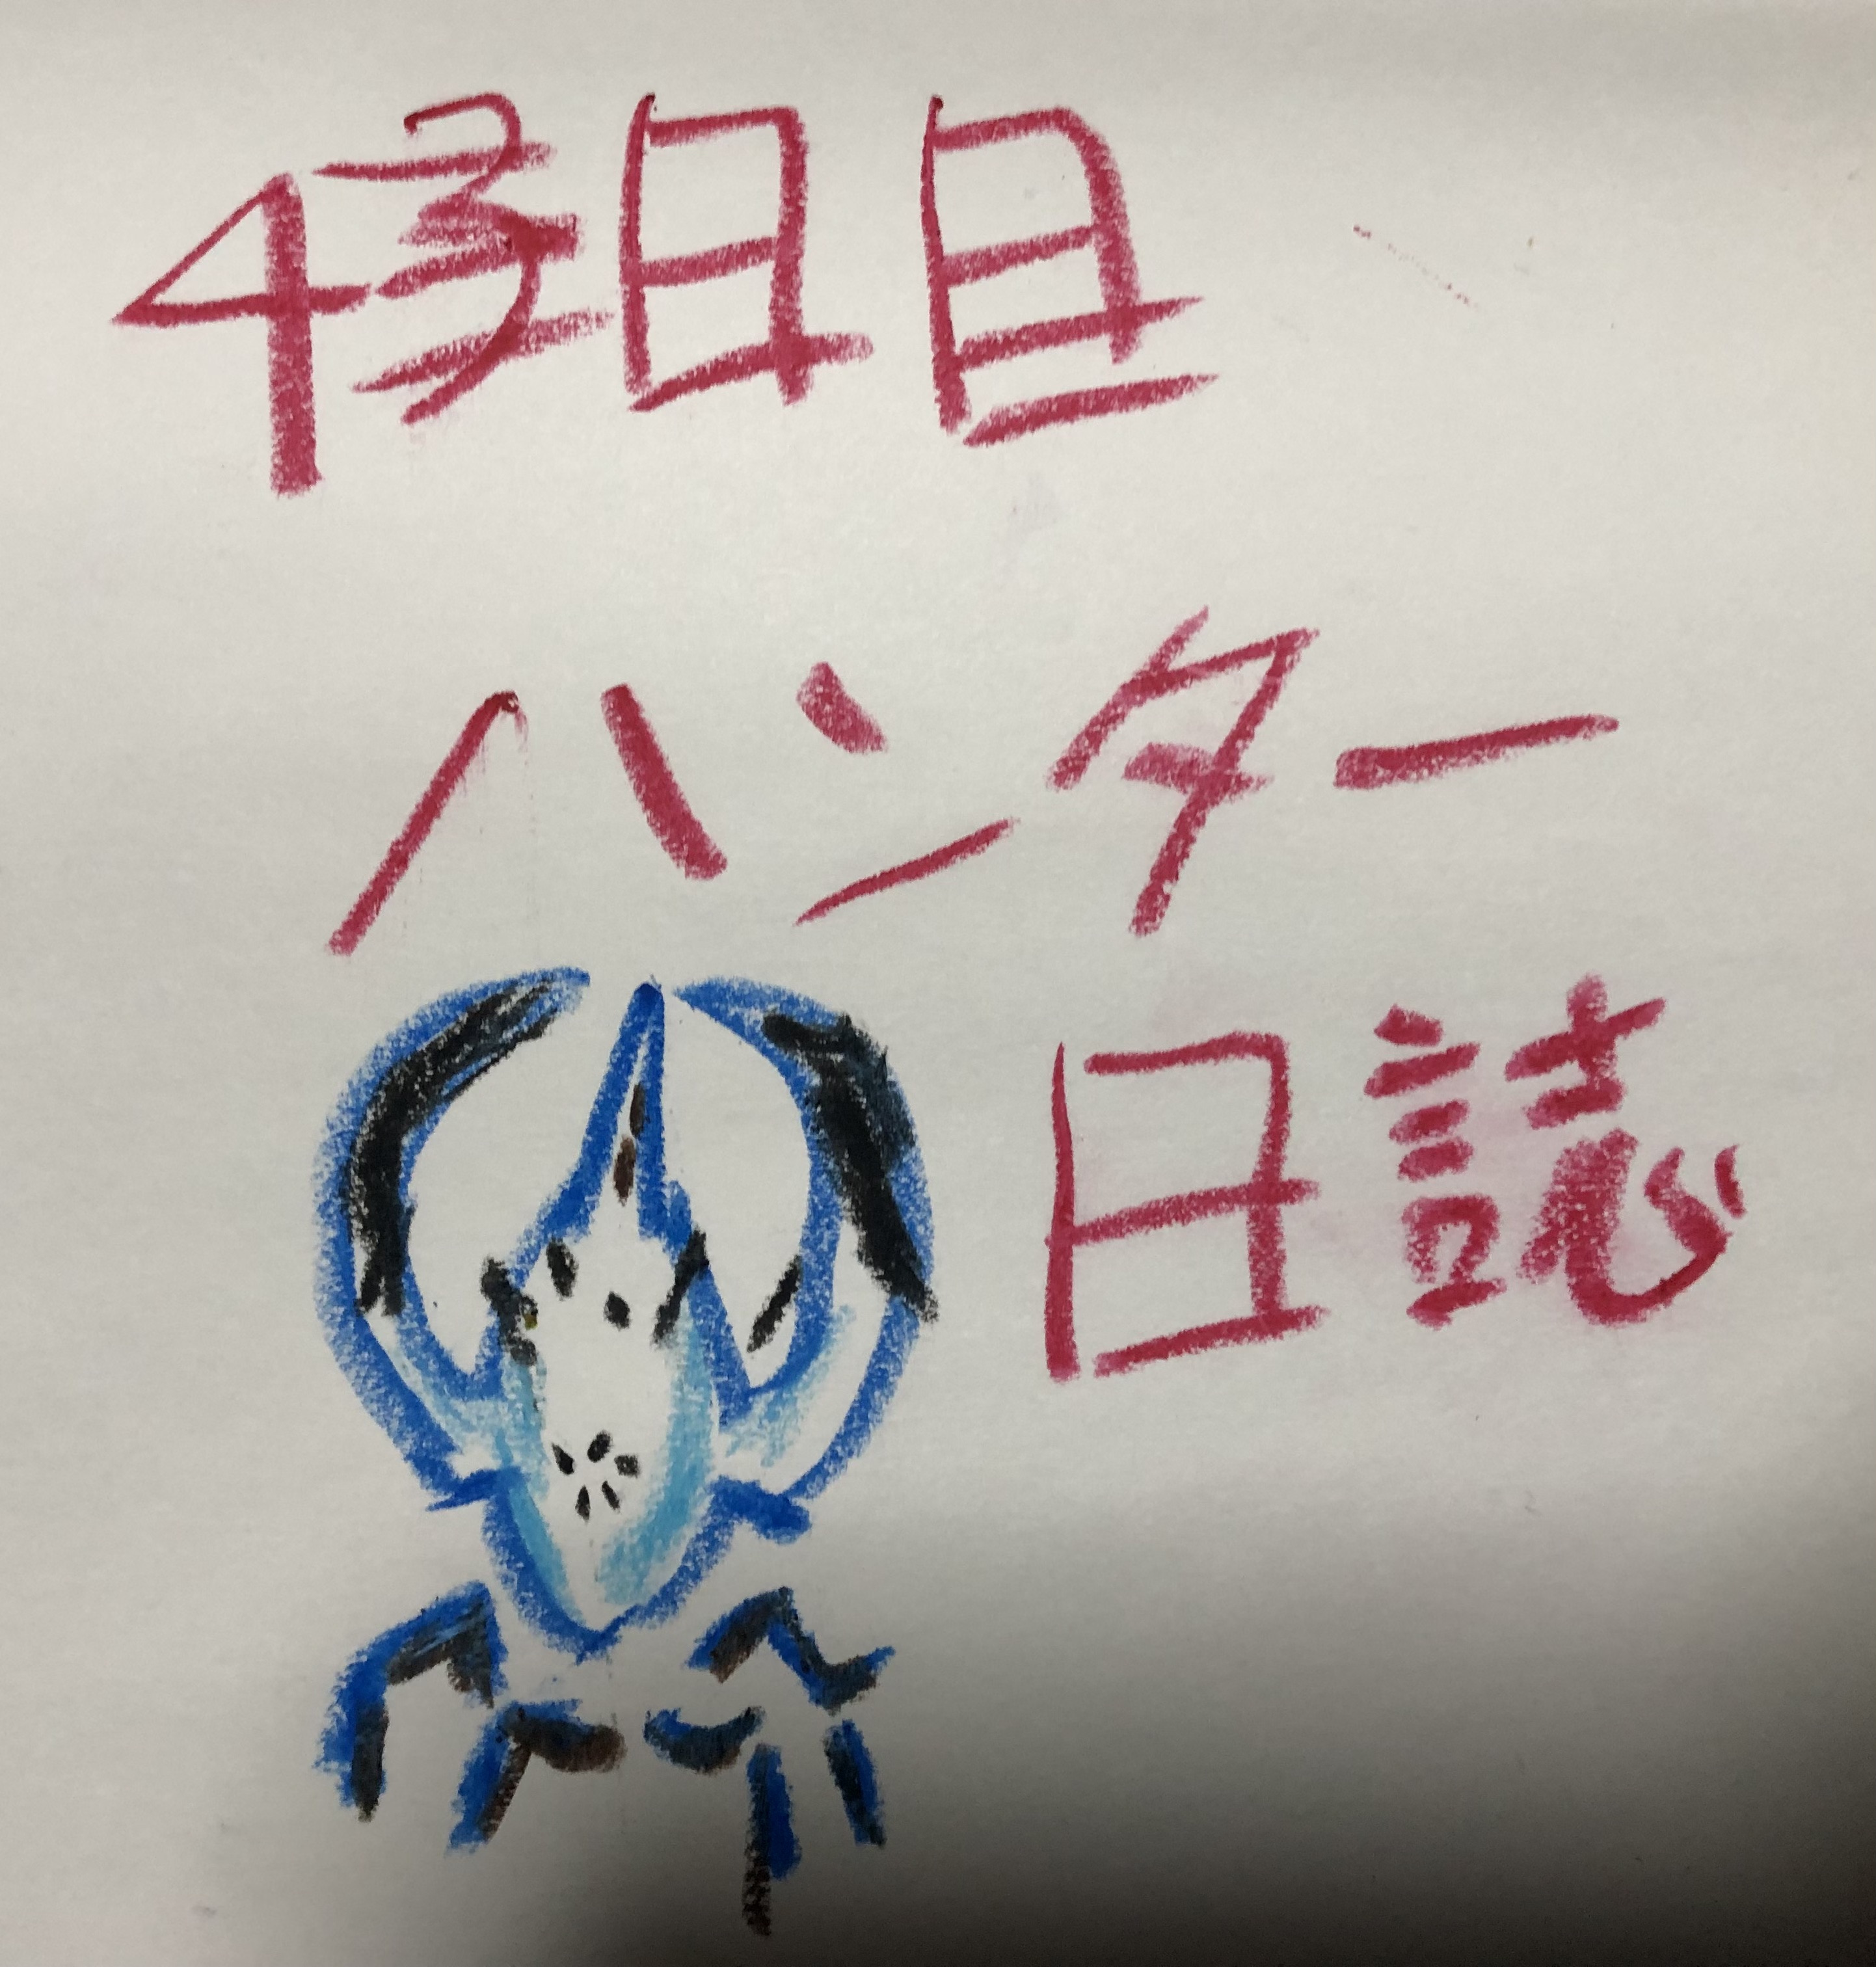 4日目
ハンター
日誌